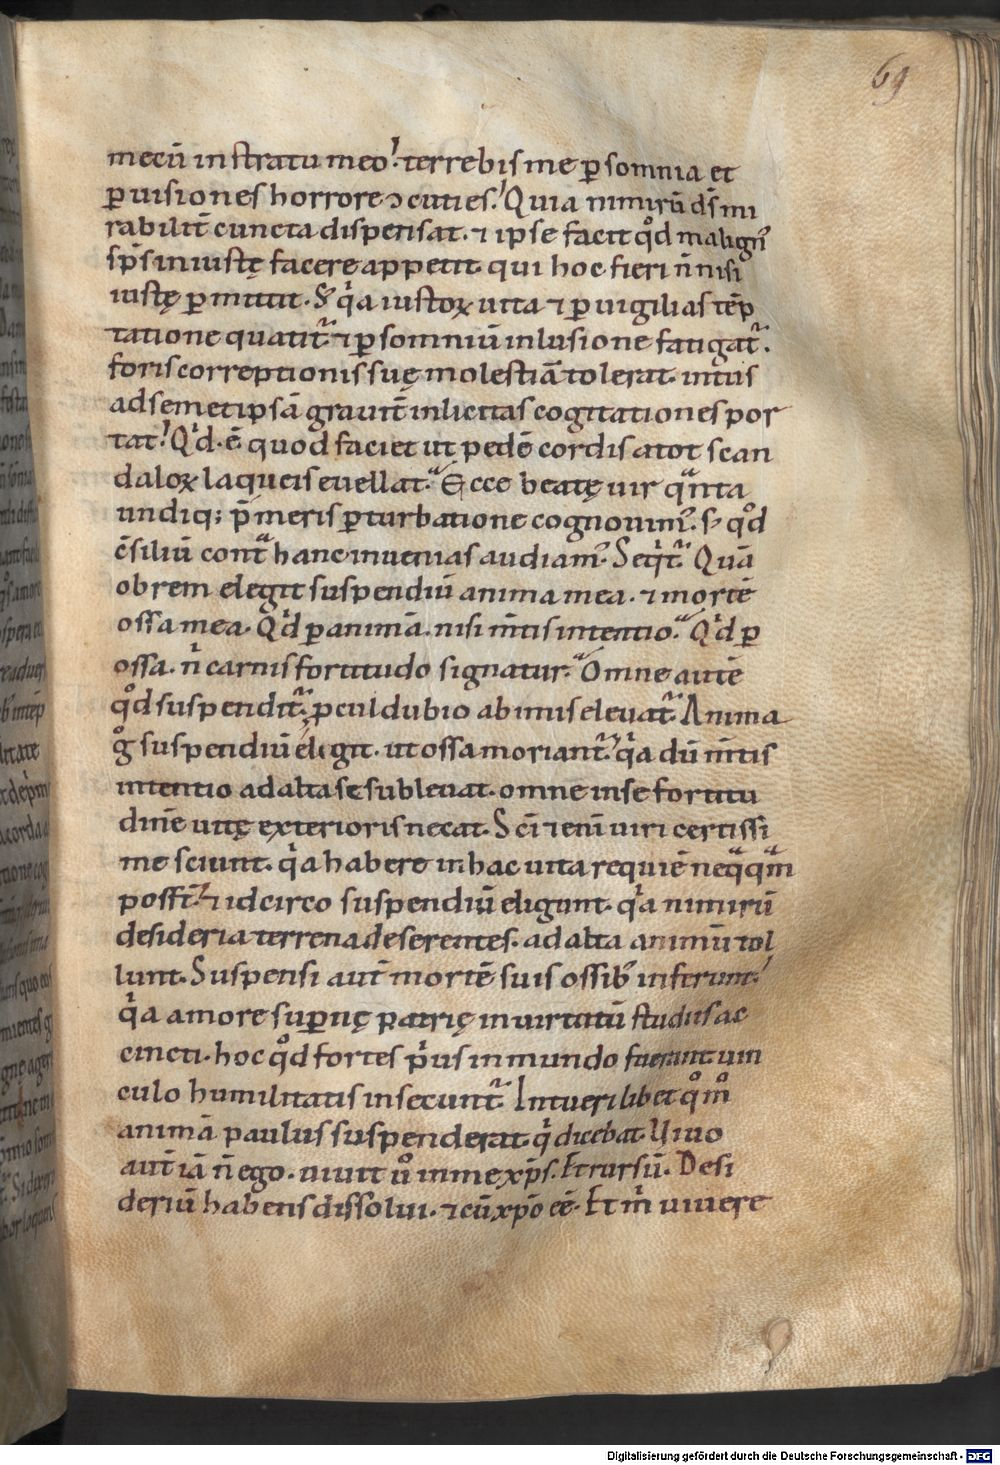 69
mecū in stratu meo. terrebis me ꝑ somnia et
ꝑ uisiones horrore ↄcuties. Quia nimirū d̄s mi
rabilit̄ cuncta dispensat. ⁊ ipse facit qͦd malignꝰ
sp̄s iniustę facere appetit. qui hoc fieri n̄ nisi
iustę ꝑmittit. S; qͥa iustoꝝ uita ⁊ ꝑ uigilias tēp
tatione quatit᷑ ⁊ ꝑ somniū inlusione fatigat᷑.
foris correptionis suę molestiā tolerat. int̄us
ad semetipsā grauit̄ inlicitas cogitationes por
tat. Qͥd. ē quod faciet ut pedē cordis a tot scan
daloꝝ laqueis euellat. Ecce beatę uir qͣnta
undiq; p̄meris ꝑturbatione cognouimꝰ. s; qͦd
c̄siliū contͣ hanc inuenias audiamꝰ. Seqͥt᷑. Quā
obrem elegit suspendiū anima mea. ⁊ mortē
ossa mea. Qͥd ꝑ animā. nisi m̄tis intentio. Qͥd ꝑ
ossa. n̄ carnis fortitudo signatur. Omne autē
qͦd suspendit᷑. ꝓculdubio ab imis eleuat᷑. Anima
gͦ suspendiū elegit. ut ossa moriant᷑. qͥa dū m̄tis
intentio ad alta se subleuat. omnē in se fortitu
dinē uitę exterioris necat. Sc̄i etenī uiri certissi
me sciunt. qͥa habere in hac uita requiē neqͣqͣm
posst᷑. ⁊ idcirco suspendiū eligunt. qͥa nimirū
desideria terrena deserentes. ad alta animū tol
lunt. Suspensi aut̄ mortē suis ossibꝰ inferunt.
qͥa amore suꝑnę patrię in uirtatū studiis ac
cincti. hoc qͦd fortes pͥus in mundo fuerant uin
culo humilitatis insecunt᷑. Intueri libet qͦmͦ
animā paulus suspenderat. qͥ dicebat. Uiuo
aut̄ iā n̄ ego. uiuit uͦ in me xp̄s. Et rursū. Desi
deriū habens dissolui. ⁊ cū xp̄o eē. Et mͥ uiuere
Digitalisierung gefördert durch die Deutsche Forschungsgemeinschaft - DFG